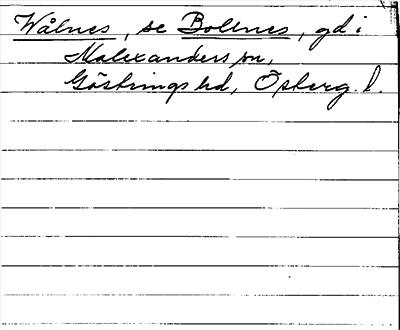 Wålnes, se Bollnes, gd i
Malexanders sn,
Göstrings hd, Österg. l.